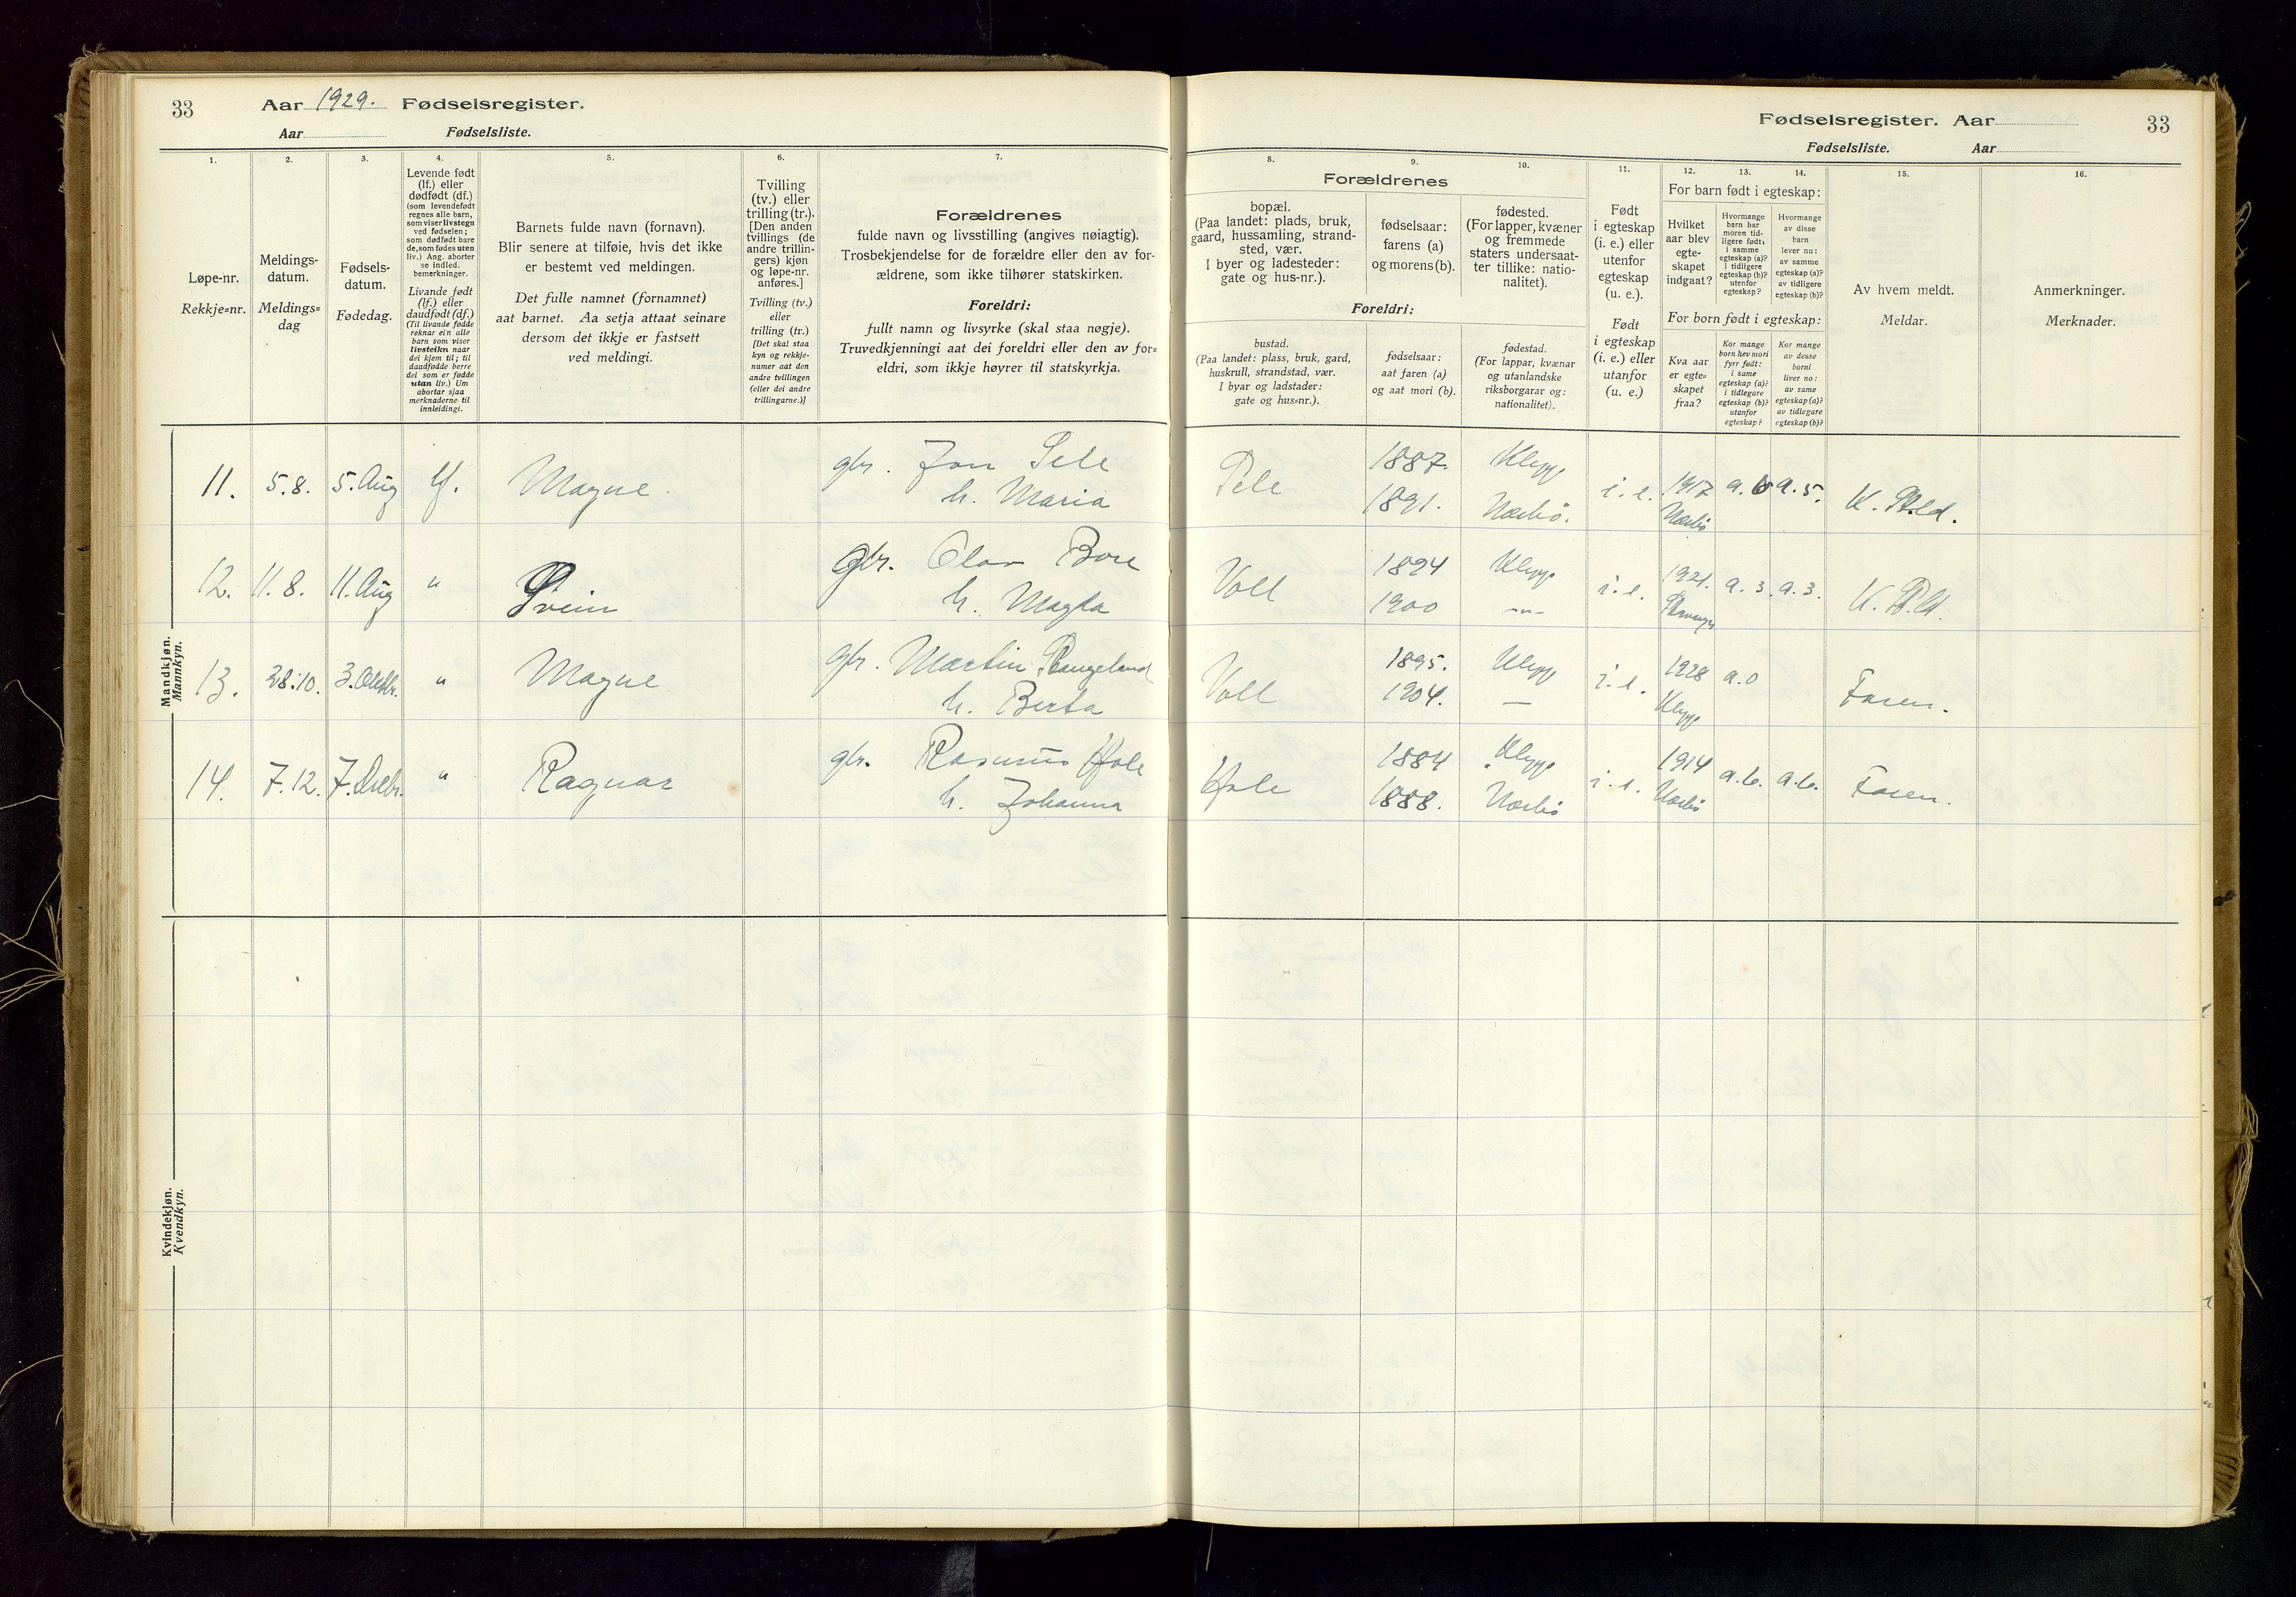 33
Aar 1929. Fødselsregister.
Aar Fødselsliste.
1.
Løpe-nr.
Rekkje=nr.
2.
Meldings-
datum.
Meldings=
dag
3.
Fødsels-
datum.
Fødedag.
4.
Levende født
(lf.) eller
dødfødt (df.)
(som levendefødt
regnes alle barn,
som viser livstegn
ved fødselen;
som dødfødt bare
de, som fødes uten
liv.) Ang. aborter
se indled.
bemerkninger.
Livande født
(lf.) eller
daudfødt (df.)
(Til livande fødde
reknar ein alle
barn som viser
livsteikn naar
dei kjem til; til
daudfødde berre
dei som er fødde
utan liv.) Um
abortar sjaa
merknaderne til
innleidingi.
5.
Barnets fulde navn (fornavn).
Blir senere at tilføie, hvis det ikke
er bestemt ved meldingen.
Det fulle namnet (fornamnet)
aat barnet. Aa setja attaat seinare
dersom det ikkje er fastsett
ved meldingi.
6.
Tvilling
(tv.) eller
trilling (tr.).
[Den anden
tvillings (de
andre trillin-
gers) kjøn
og løpe-nr.
anføres.]
Tvilling (tv.)
eller
trilling (tr.)
[Det skal staa
kyn og rekkje-
numer aat den
andre tvillingen
(eller dei andre
trillingarne.)]
7.
Forældrenes
fulde navn og livsstilling (angives nøiagtig).
Trosbekjendelse for de forældre eller den av for-
ældrene, som ikke tilhører statskirken.
Foreldri:
fullt namn og livsyrke (skal staa nøgje).
Truvedkjenningi aat dei foreldri eller den av for=
eldri, som ikkje høyrer til statskyrkja.
Mandkjøn.
Mannkyn.
11. 5.8. 5. Aug lf. Magne gbr. Jon Sele
h. Maria
12. 11. 8. 11. Aug " Svein gbr. Olav Bore
h. Magda
13. 28.10. 3. Oktbr. " Magne gbr. Martin Stangeland
h. Berta
14. 7.12. 7. Desbr. " Ragnar gbr. Rasmus Hole
h. Johanna
Kvindekjøn.
Kvendkyn.
Fødselsregister. Aar 33
Fødselsliste. Aar
Forældrenes
8.
bopæl.
(Paa landet: plads, bruk,
gaard, hussamling, strand-
sted, vær.
I byer og ladesteder:
gate og hus-nr.).
9.
fødselsaar:
farens (a)
og morens (b).
10.
fødested.
(For lapper, kvæner
og fremmede
staters undersaat-
ter tillike: natio-
nalitet).
Foreldri:
bustad.
(Paa landet: plass, bruk, gard,
huskrull, strandstad, vær.
I byar og ladstader:
gate og hus=nr.).
fødselsaar:
aat faren (a)
og aat mori (b).
fødestad.
(For lappar, kvænar
og utanlandske
riksborgarar og:
nationalitet).
11.
Født
i egteskap
(i. e.) eller
utenfor
egteskap
(u. e.).
Født
i egteskap
(i. e.) eller
utanfor
(u. e.)
12. 13. 14.
For barn født i egteskap:
Hvilket
aar blev
egte-
skapet
indgaat?
Hvormange
barn har
moren tid-
ligere født:
i samme
egteskap (a)?
i tidligere
egteskap (b)?
utenfor
egteskap?
Hvormange
av disse
barn
lever nu:
av samme
egteskap (a)?
av tidligere
egteskap (b)?
For born født i egteskap:
Kva aar
er egte=
skapet
fraa?
Kor mange
born hev mori
fyrr født:
i same
egteskap (a)?
i tidlegare
egteskap (b)?
utanfor
egteskap?
Kor mange
av desse
borni
liver no:
av same
egteskap (a)?
av tidlegare
egteskap (b)?
15.
Av hvem meldt.
Meldar.
16.
Anmerkninger.
Merknader.
Sele 1887. Klepp i. e. 1917 a. 6 a. 5.
1891. Nærbø. Nærbø
Voll 1894 Klepp i. e. 1921. a. 3. a. 3.
1900 -"- Stavanger
Voll 1895. Klepp i. e. 1928 a. 0 Faren.
1904. — Klepp
Hole 1884 Klepp i. e. 1914 a. 6. a. 6. Faren.
1888. Nærbø Nærbø